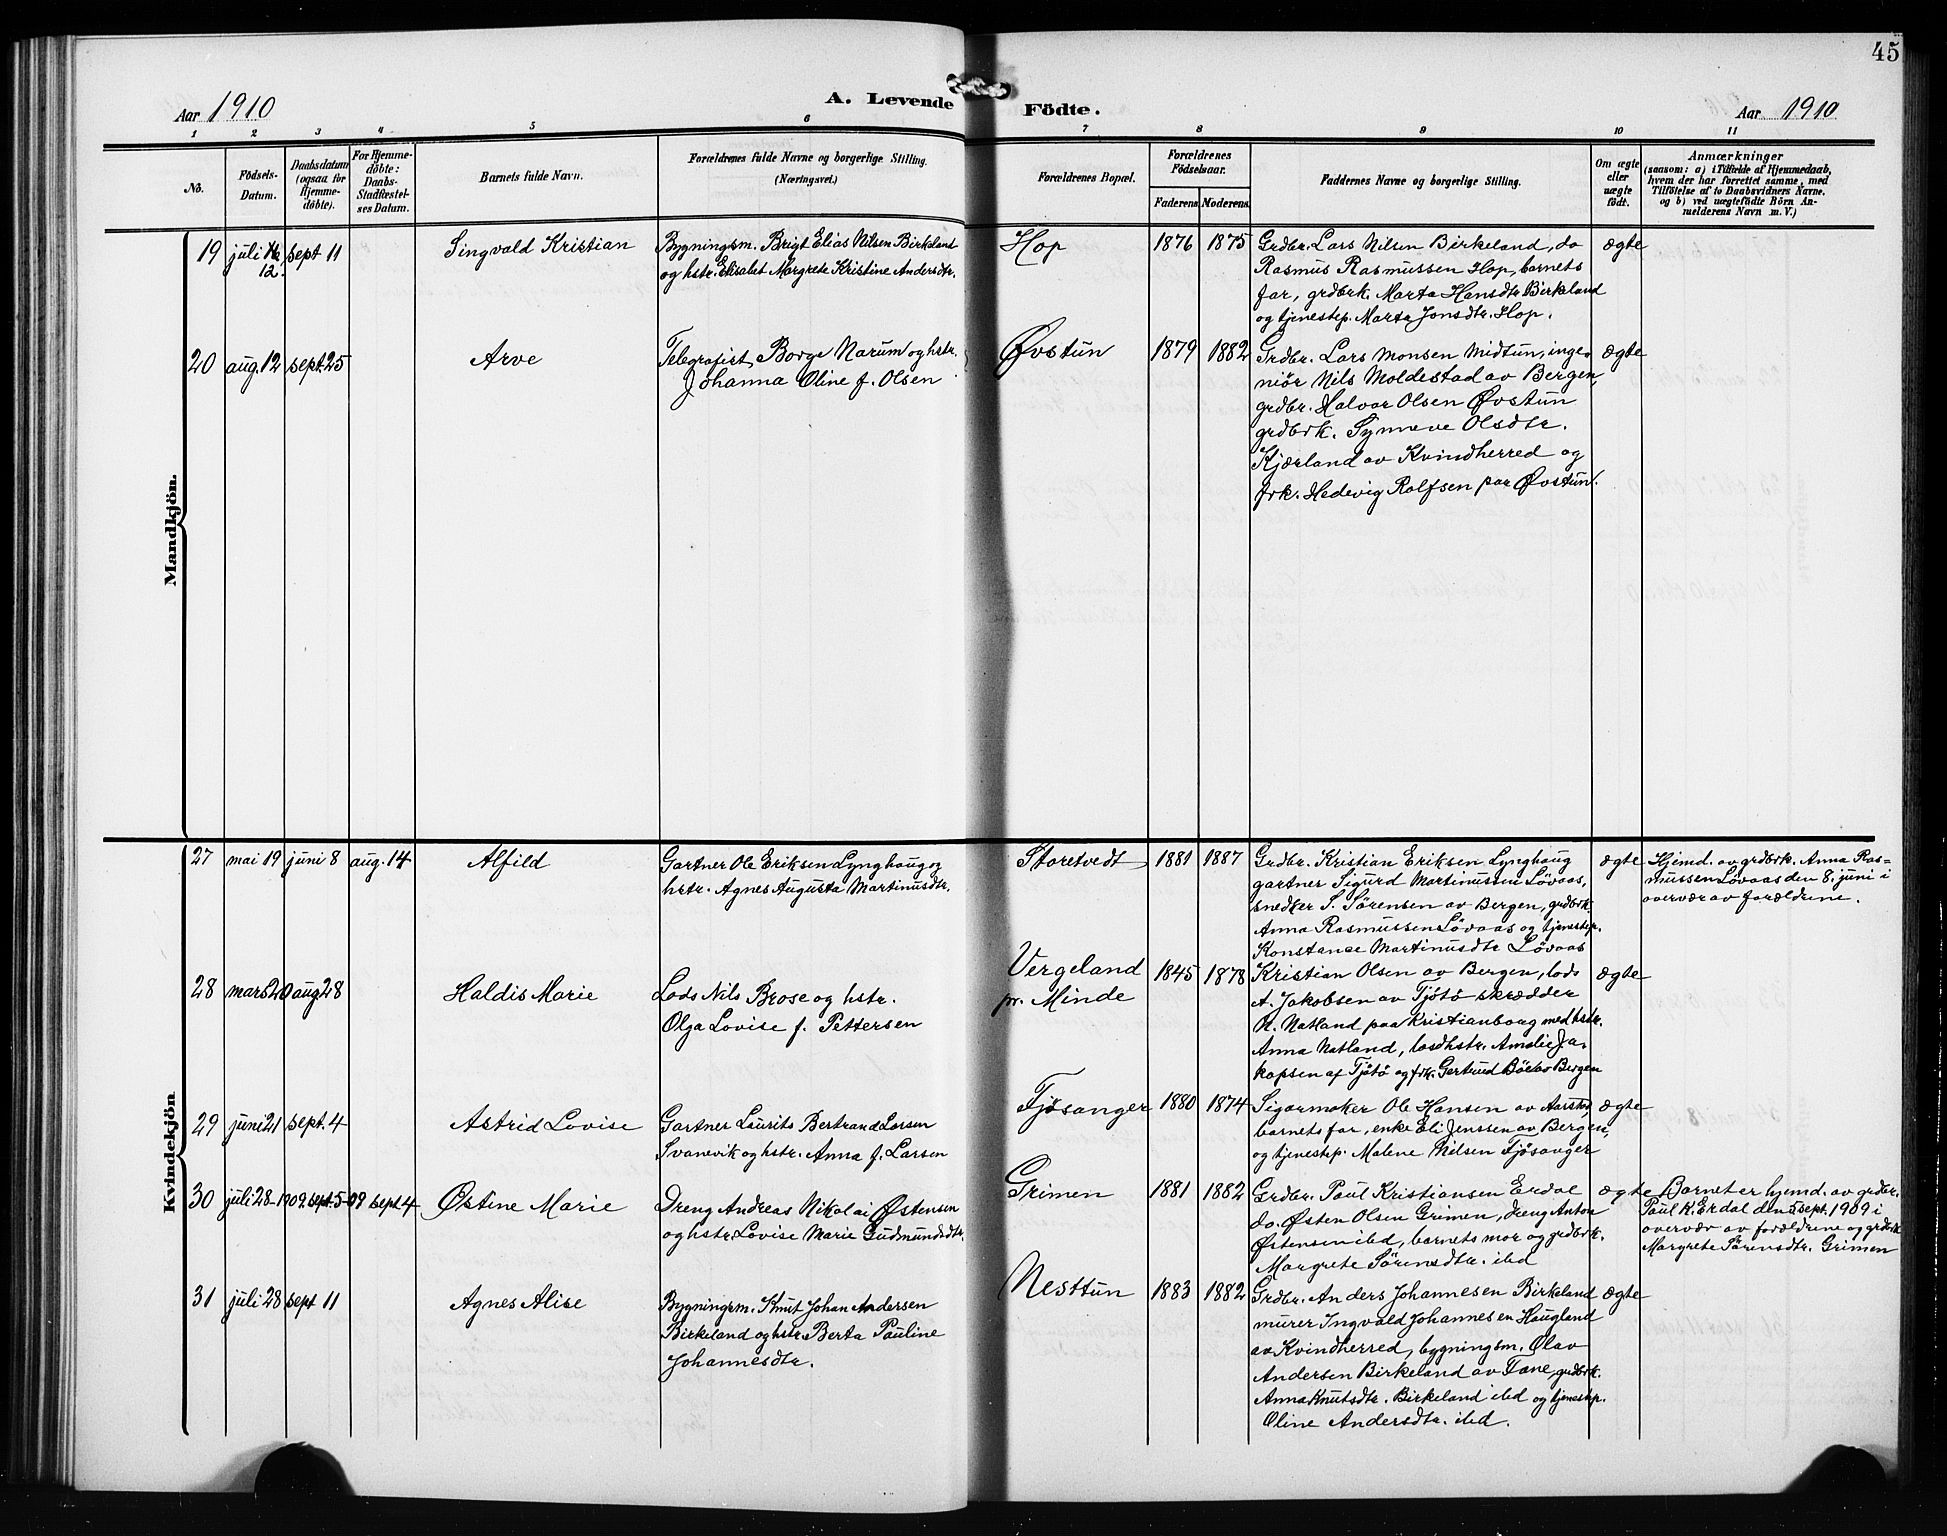 45
Aar 1910
A. Levende Födte.
Aar 1910
1 2 3 4 5 6 7 8 9 10 11
No.
Födsels-
Datum.
Daabsdatum
(ogsaa for
Hjemme-
döbte).
For Hjemme-
döbte:
Daabs-
Stadfæstel-
ses Datum.
Barnets fulde Navn.
Forældrenes fulde Navne og borgerlige Stilling.
(Næringsvei.)
Forældrenes Bopæl.
Forældrenes
Födselsaar.
Faderens Moderens
Faddernes Navne og borgerlige Stilling.
Om ægte
eller
uægte
födt.
Anmærkninger
(saasom: a) i Tilfælde af Hjemmedaab,
hvem der har forrettet samme, med
Tilföielse af to Daabsvidners Navne,
og b) ved uægtefödte Börn An-
melderens Navn m. V.)
Mandkjön.
19 juli
12. sept 11 Singvald Kristian
Bygningsm. Brigt Elias Nilsen Birkeland
og hstr. Elisabet Margrete Kristine Andersdtr.
Hop 1876 1875
Grdbr. Lars Nilsen Birkeland, do
Rasmus Rasmussen Hop, barnets
far, grdbrk. Marta Hansdtr Birkeland
og tjenestep. Marta Jonsdtr. Hop.
ægte
20 aug. 12 sept. 25 Arve
Telegrafist Borge Narum og hstr.
Johanna Oline f. Olsen
Øvstun 1879 1882
Grdbr. Lars Monsen Midtun, inge-
niör Nils Moldestad av Bergen,
grdbr. Halvor Olsen Øvstun
grdbrk. Synneve Olsdtr.
Kjærland av Kvindherred og
frk. Hedevig Rolfsen paa Øvstun.
ægte
Kvindekjön
27 mai 19 juni 8 aug. 14 Alfild
Gartner Ole Eriksen Lynghaug og
hstr. Agnes Augusta Martinusdtr.
Storetvedt 1881 1887
Grdbr. Kristian Eriksen Lynghaug
gartner Sigurd Martinussen Lövaas,
snedker S. Sörensen av Bergen, grdbrk.
Anna Rasmussen Lövaas og tjenestep.
Konstance Martinusdtr Lövaas
ægte
Hjemd. av grdbrk. Anna Ras=
mussen Lövaas den 8. juni i
overvær av forældrene.
28 mars 20 aug 28 Haldis Marie
Lods Nils Brose og hstr.
Olga Lovise f. Pettersen
Vergeland
pr. Minde
1845 1878
Kristian Olsen av Bergen, lods
A. Jakobsen av Tjötö skrædder
N. Natland paa Kristianborg med hstr.
Anna Natland, losdhstr. Amalie Ja-
kopsen af Tjötö og frk. Gertrud Böe av Bergen
ægte
29 juni 21 sept. 4 Astrid Lovise
Gartner Laurits Bertrand Larsen
Svanevik og hstr. Anna f. Larsen
Fjösanger 1880 1874
Sigarmaker Ole Hansen av Aarstad,
barnets far, enke Eli Jenssen av Bergen,
og tjenestep. Malene Nilsen Fjösanger
ægte
30 juli 28 1909. sept. 5-09 sept 4 Østine Marie
Dreng Andreas Nikolai Østensen
og hstr. Lovise Marie Gudmundsdtr.
Grimen 1881 1882
Grdbr. Paul Kristiansen Erdal
do. Østen Olsen Grimen, dreng Anton
Østensen ibd, barnets mor og grdbrk.
Margrete Sörensdtr. ibd
ægte
Barnet er hjemd. av grdbr.
Paul K. Erdal den 5 sept. 1909 i
overvær av forældrene og grdbrk
Margrete Sörensdtr. Grimen
31 juli 28 sept 11 Agnes Alise
Bygningsm. Knut Johan Andersen
Birkeland og hstr. Berta Pauline
Johannesdtr.
Nesttun 1883 1882
Grdbr. Anders Johannesen Birkeland
murer Ingvald Johannesen Haugland
av Kvindherred, bygningsm. Olav
Andersen Birkeland av Fane, grdbrk.
Anna Knutsdtr. Birkeland ibd og tjenestep.
Oline Andersdtr. ibd.
ægte